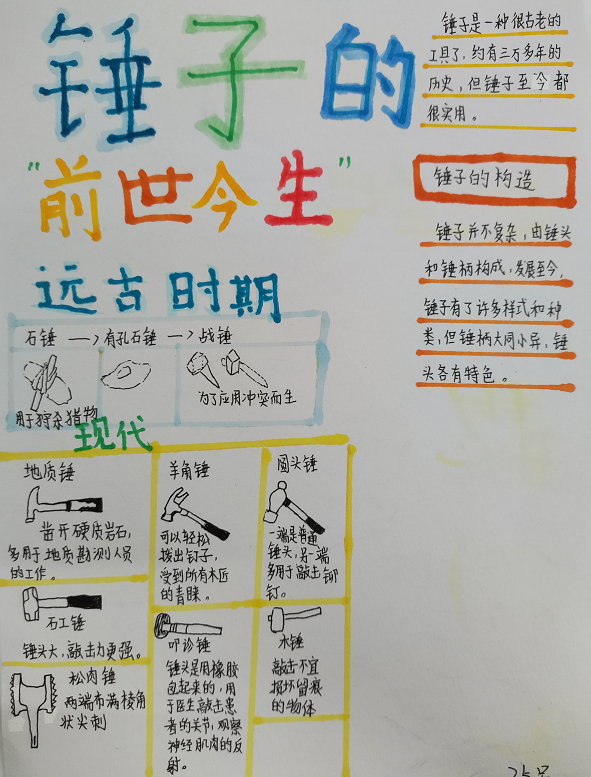 锤子的
"前世今生"
锤子是一种很古老的
工具了，约有三万多年的
历史，但锤子至今都
很实用。
锤子的构造
锤子并不复杂，由锤头
和锤柄构成，发展至今，
锤子有了许多样式和种
类，但锤柄大同小异，锤
头各有特色。
远古时期
石锤 —> 有孔石锤 —> 战锤
用于狩杀猎物
为了应用冲突而生
现代
地质锤
凿开硬质岩石，
多用于地质勘测人员
的工作。
羊角锤
可以轻松
拔出钉子，
受到所有木匠
的青睐。
圆头锤
一端是普通
锤头，另一端
多用于敲击铆
钉。
石工锤
锤头大，敲击力更强。
叩诊锤
锤头是用橡胶
包起来的，用
于医生敲击患
者的关节，观察
神经肌肉的反
射。
木锤
敲击不宜
损坏留痕
的物体
松肉锤
两端布满棱角
状尖刺
25号